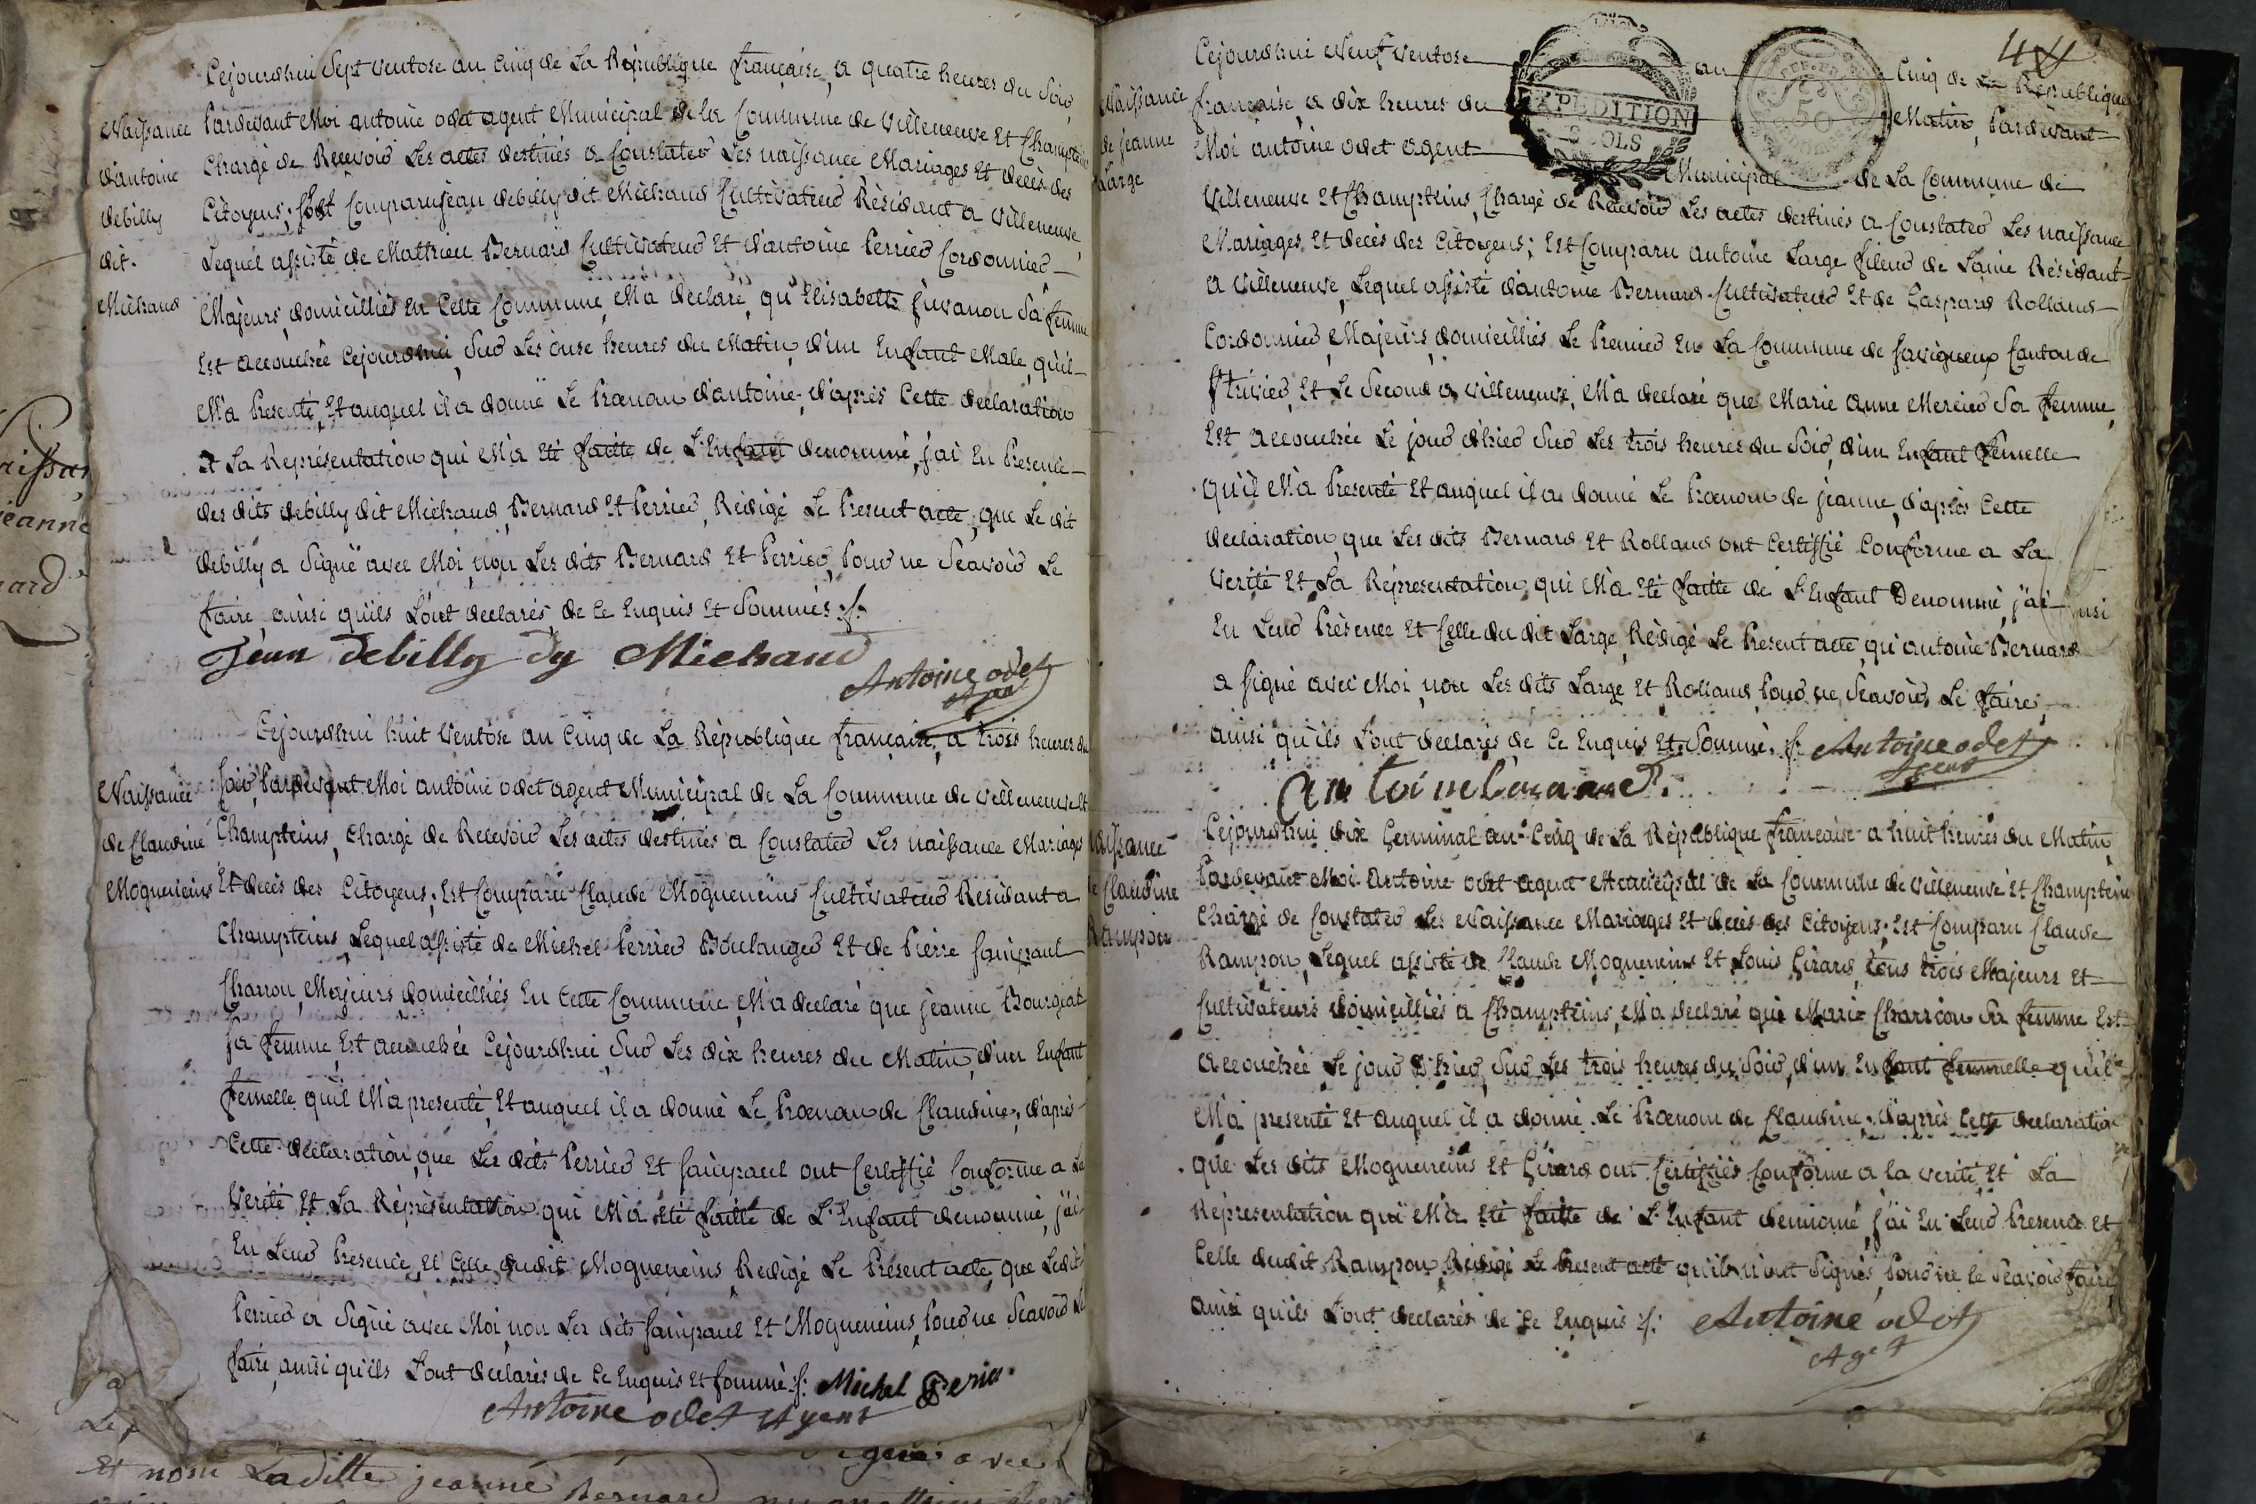 Cejourdhui Sept Ventose an Cinq de La République françaiṡe, a quatre heures du Soir
Naissance
d'antoine
debilly
dit.
Michaud
Pardevant Moi antoine odet agent Municipal de la Commune de Villeneuve Et Champteins
Chargé de Recevoir Les actes destinés a Constater Les naissance Mariages Et decès des
Citoyens; Est Comparu jean debilly dit Michaud Cultivateur Résidant a Villeneuve
Lequel assisté de Mathieu Bernard Cultivateur Et d'antoine Perrier Cordonnier
Majeurs, domicilliés En Cette Commune, M'a declaré, qu'Elisabette juvanon Sa femme
Est accouchée Cejourdhui, Sur Les onse heures du Matin, d'un Enfant Male, qu'il
M'a Presenté, Et auquel il a donné Le Prœnom d'antoine, d'après Cette declaration
Et La Représentation qui M'a Eté faitte de L'Enfant denommé, j'ai En Presence
des dits debilly dit Michaud, Bernard Et Perrier, Rédigé Le Present acte, que Le dit
debilly a Signé avec Moi, non Les dits Bernard Et Perrier, Pour ne Scavoir Le
faire, ainsi qu'ils L'ont declarés, de Ce Enquis Et Sommés ./.
Jean debilly dy Michaud
Antoine odet
agent
Cejourdhui huit Ventose an Cinq de La République française, a trois heures du
Naissance
de Claudine
Mogueneins
Soir, Pardevant Moi antoine odet agent Municipal de La Commune de Villeneuve Et
Champteins, Chargé de Recevoir Les actes destinés a Constater Les naissance Mariages
Et decès des Citoyens; Est Comparu Claude Mogueneins Cultivateur Résidant a
Champteins, Lequel assisté de Michel Perrier Boulanger Et de Pierre
Charron, Majeurs, domicilliés En Cette Commune, M'a declaré que jeanne Bourgeat
Sa femme, Est accouchée Cejourdhui, Sur Les dix heures du Matin, d'un Enfant
femelle qu'il M'a presenté, Et auquel il a donné Le Prœnom de Claudine, d'après
Cette declaration, que Les dits Perrier Et ont Certiffié Conforme a La
Verité Et La Réprésentation qui M'a Eté faitte de L'Enfant denommé, j'ai
En Leur Presence, Et Celle dudit Mogueneins, Redigé Le Présent acte, que Ledit
Perrier a Signé avec Moi, non Les dits Et Mogueneins, Pour ne Scavoir Le
faire, ainsi qu'ils L'ont declarés de Ce Enquis Et Sommé ./. Michel Perier
Antoine odet agent
44
Cejourdhui Neuf Ventose an Cinq de La République
Naissance
de jeanne
Large
EXPEDITION
SOLS
50
française, a dix heures du Matin, Pardevant
Moi antoine odet agent Municipal de La Commune de
Villeneuve Et Champteins, Chargé de Recevoir Les actes destinés a Constater Les naissance
Mariages, Et decès des Citoyens; Est Comparu antoine Large fileur de Laine Résidant
a Villeneuve, Lequel assisté d'antoine Bernard Cultivateur Et de Gaspard Rolland
Cordonnier, Majeurs, domicilliés Le Premier En La Commune de Savigneux Canton de
St Trivier, Et Le Second a Villeneuve, M'a declaré que Marie Anne Mercier Sa femme,
Est accouchée Le jour d'hier Sur Les trois heures du Soir, d'un Enfant femelle
qu'il M'a Presenté Et auquel il a donné Le Prœnom de jeanne, d'après Cette
declaration, que Les dits Bernard Et Rolland ont Certiffié Conforme a La
Verité Et La Réprésentation qui M'a Eté faitte de L'Enfant Denommé, j'ai
En Leur Présence Et Celle du dit Large, Rédigé Le Present acte, qu'antoine Bernard
a signé avec Moi, non Les dits Large Et Rolland, Pour ne Scavoir Le faire,
ainsi qu'ils L'ont declarés de Ce Enquis Et Sommé. ./. Antoine odet
agent
Cejourdhui dix Germinal an Cinq de La République française a huit heures du Matin,
Naissance
de Claudine
Rampon
Pardevant Moi Antoine odet agent Municipal de La Commune de Villeneuve Et Champteins
Chargé de Constater Les Naissance Mariages Et decès des Citoyens; Est Comparu Claude
Rampon, Lequel assisté de Claude Mogueneins Et Louis Girard, tous trois Majeurs Et
Cultivateurs domicilliés a Champteins, M'a declaré que Marie Charrion Sa femme Est
accouchée Le jour d'hier, Sur Les trois heures du Soir, d'un Enfant femmelle qu'il
M'a presenté Et auquel il a donné Le Prœnom de Claudine, d'après Cette declaration
que Les dits Mogueneins Et Girard ont Certiffiés Conforme a la verité Et La
Réprésentation qui M'a Eté faitte de L'Enfant denomé, j'ai En Leur Présence Et
Celle dudit Rampon, Rédigé Le Présent acte qu'ils n'ont Signés, Pour ne le Scavoir faire,
ainsi qu'ils L'ont declarés de Ce Enquis ./. Antoine odet
Aget
Et non Laditte jeanne Bernard